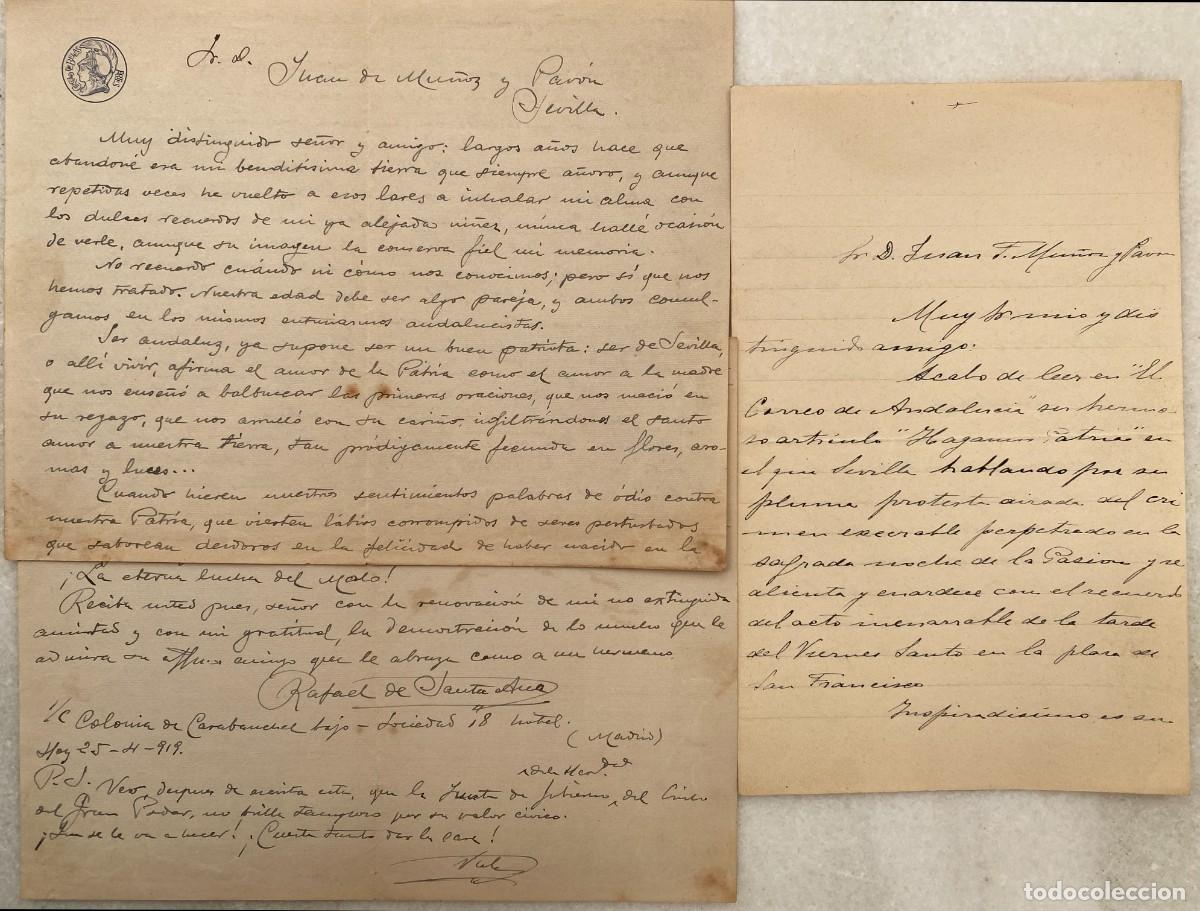 Sr. D.
Juan de Muñoz y Pavón
Sevilla.
Muy distinguido señor y amigo: largos años hace que
abandoné esa mi benditísima tierra que siempre añoro, y aunque
repetidas veces he vuelto a esos lares a inhalar mi alma con
los dulces recuerdos de mi ya alejada niñez, nunca hallé ocasión
de verle, aunque su imagen la conserva fiel mi memoria.
No recuerdo cuándo ni cómo nos conocimos; pero sí que nos
hemos tratado. Nuestra edad debe ser algo pareja, y ambos comul-
gamos en los mismos entusiasmos andalucistas.
Ser andaluz, ya supone ser un buen patriota: ser de Sevilla,
o allí vivir, afirma el amor de la Patria como el amor a la madre
que nos enseñó a balbucear las primeras oraciones, que nos meció en
su regazo, que nos arrulló con su cariño, infiltrándonos el santo
amor a nuestra tierra, tan pródigamente fecunda en flores, aro-
mas y luces...
Cuando hieren nuestros sentimientos palabras de ódio contra
nuestra Patria, que vierten lábios corrompidos de seres perturbados
que saborean deidoros en la felicidad de haber nacido en la
¡La eterna lucha del Malo!
Reciba usted pues, señor con la renovación de mi no extinguida
amistad y con mi gratitud, la demostración de lo mucho que le
admira su affmo amigo que le abraza como a un hermano
Rafael de Santa Ana
S/C Colonia de Carabanchel bajo - Sociedad 18 hotel.
(Madrid)
Hoy 25-4-919.
P.S. Veo, después de escrita esta, que la Junta de Gobierno de la Herdad del Cristo
del Gran Poder, no brilla tampoco por su valor cívico.
¡Qué se le va a hacer! ¡Cuesta tanto dar la cara!
Vale
Sr. D. Juan F. Muñoz y Pavon
Muy Sr mio y dis
tinguido amigo:
Acabo de leer en "El
Correo de Andalucia" su hermo
so articulo "Hagamos Patria" en
el que Sevilla hablando por su
pluma protesta airada del cri
men execrable perpetrado en la
sagrada noche de la Pasion y se
alienta y enardece con el recuerdo
del acto inenarrable de la tarde
del Viernes Santo en la plaza de
San Francisco
Inspiradisimo es su
todocoleccion